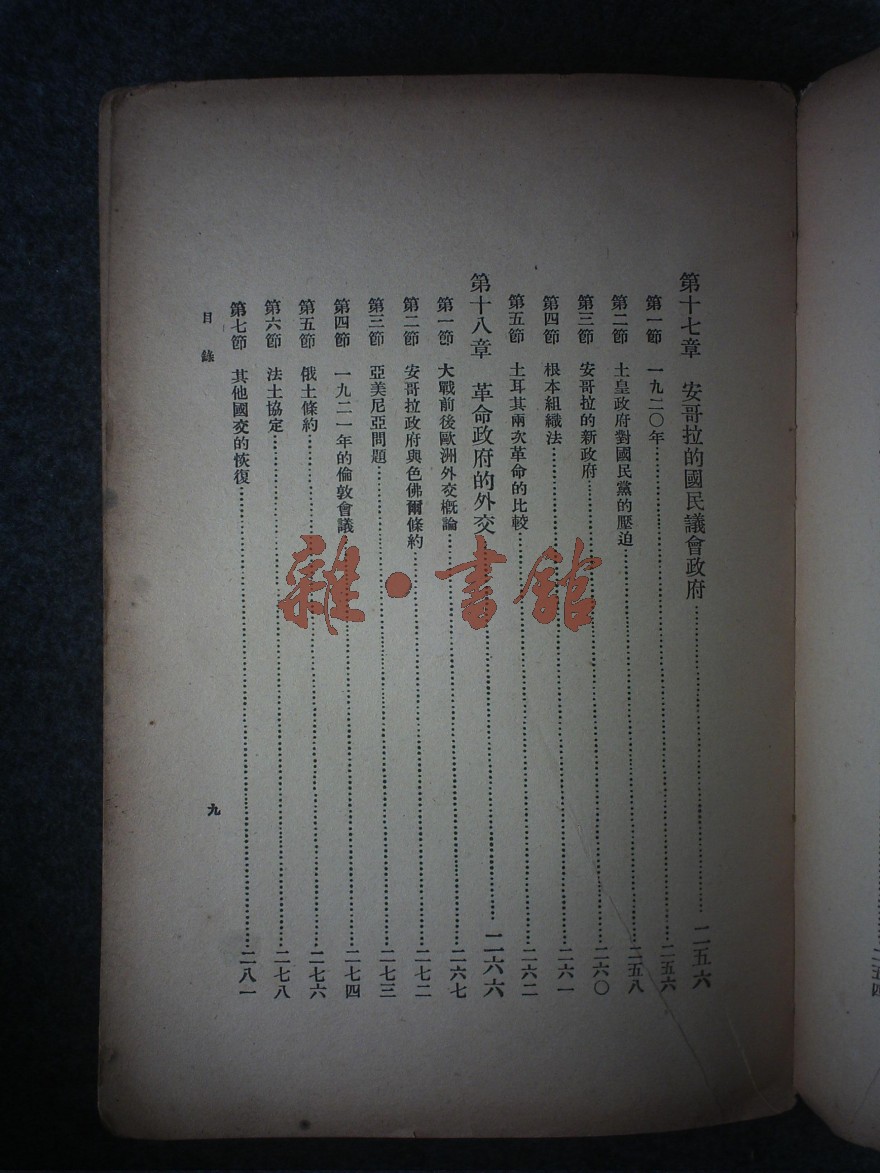 第十七章　安哥拉的國民議會政府……二五六
第一節　一九二〇年……二五六
第二節　土皇政府對國民黨的壓迫……二五八
第三節　安哥拉的新政府……二六〇
第四節　根本組織法……二六一
第五節　土耳其兩次革命的比較……二六二
第十八章　革命政府的外交……二六六
第一節　大戰前後歐洲外交概論……二六七
第二節　安哥拉政府與色佛爾條約……二七二
第三節　亞美尼亞問題……二七三
第四節　一九二一年的倫敦會議……二七四
第五節　俄土條約……二七六
第六節　法土協定……二七八
第七節　其他國交的恢復……二八一
目錄
九
雜·書館
二五四